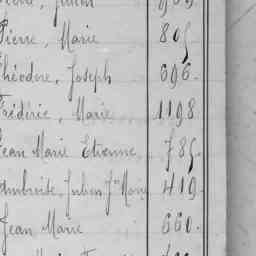 Pierre, Marie 805.
Théodore, Joseph 696.
Frédéric, Marie 1198.
Jean Marie Etienne, 785.
Ambroise, Julien Jn Marie 419.
Jean Marie 660.